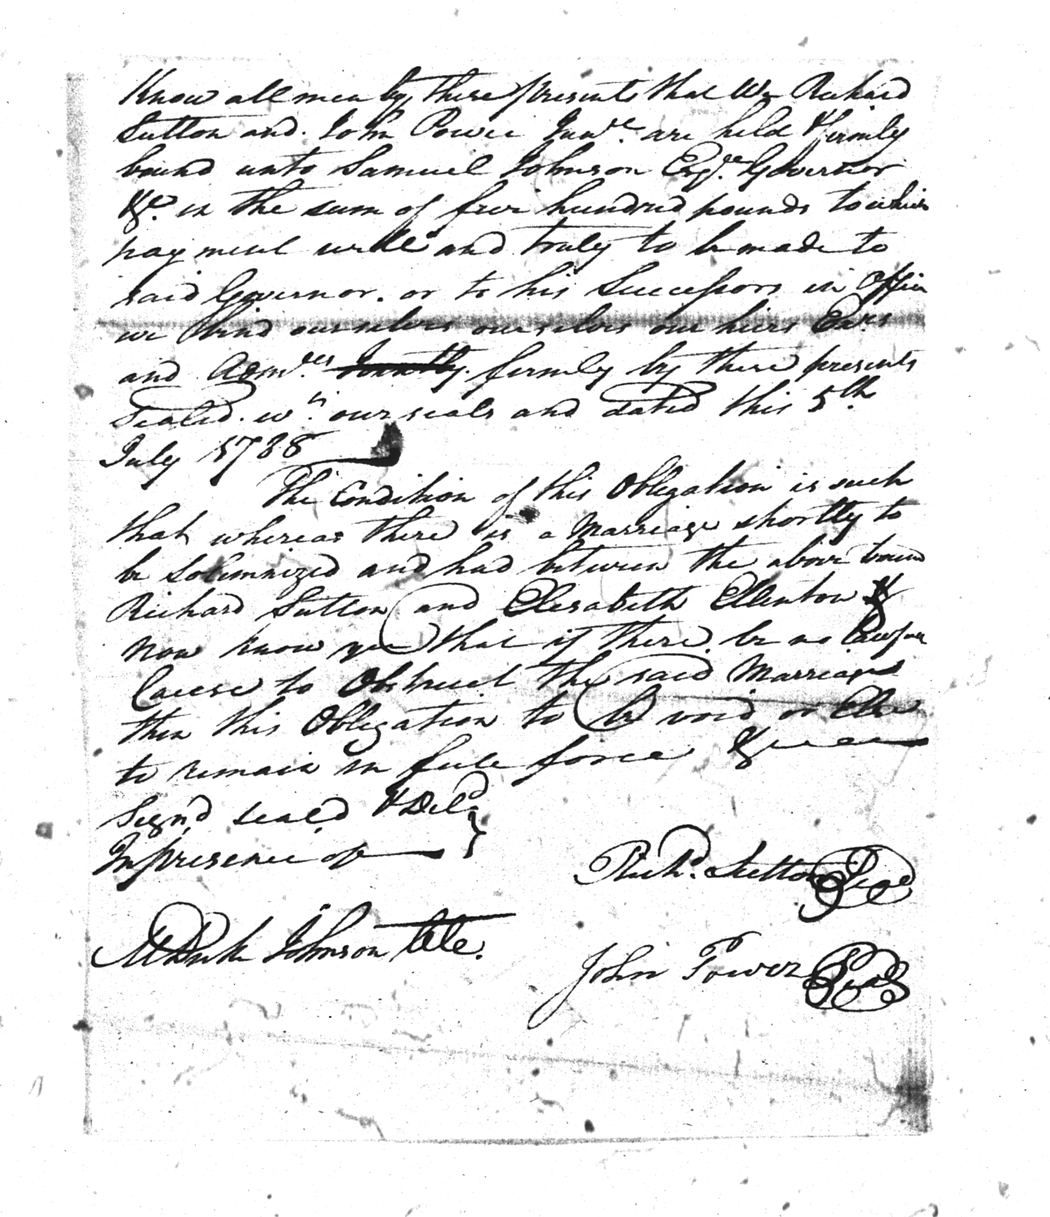 Know all men by these presents that We Richard
Sutton and John Power Junr. are held & firmly
bound unto Samuel Johnson Esqr. Governor
&c. in the sum of five hundred pounds to which
payment well and truly to be made to
said Governor. or to his Successors in Office
we bind ourselves ourselves our heirs Exrs
and Admrs. Jointly firmly by these presents
Sealed. wth. our seals and dated this 5th
July 1788
The Condition of this Obligation is such
that whereas there is a Marriage shortly to
be Solemnized and had between the above boun
Richard Sutton and Elesabeth Ellenton &
Now know ye that if there be no lawfull
Cause to Obstruct the said Marriage
then this Obligation to be void or Else
to remain in full force &c
Signd seald & Deld
In presence of
Richd. Sutton Seal
Johnson Clk.
John Power Seal